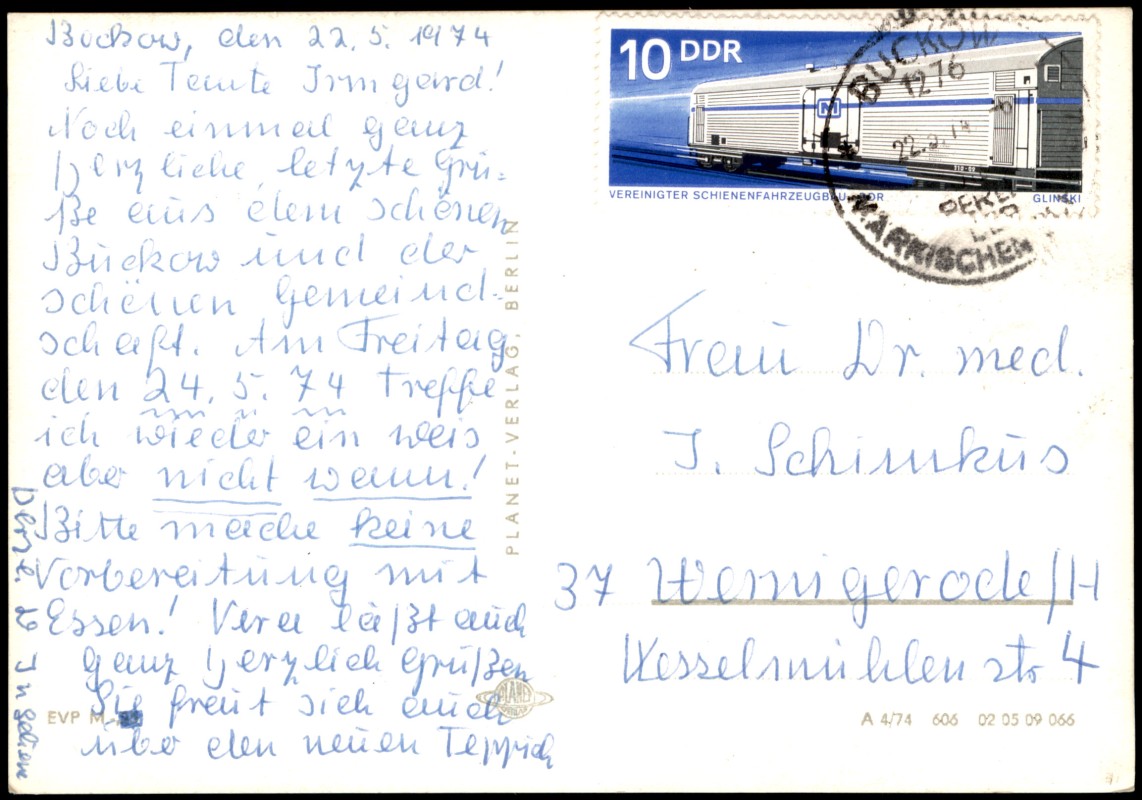 Buckow, den 22.5.1974
Liebe Tante Irmgard!
Noch einmal ganz
herzliche, letzte Grü-
ße aus dem schönen
Buckow und der
schönen Gemeind-
schaft. Am Freitag
den 24.5.74 treffe
ich wieder ein weis
aber nicht wann!
Bitte mache keine
Vorbereitung mit
Essen! Vera läßt auch
ganz herzlich Grüßen
Sie freut sich auch
über den neuen Teppich
Herzl.
EVP M
PLANET-VERLAG, BERLIN
PLANET
10 DDR
M
VEREINIGTER SCHIENENFAHRZEUGBAU DDR
GLINSKI
BUCKOW
1276
22.5.74
MÄRKISCHEN
Frau Dr. med.
I. Schimkus
37 Wernigerode/H
Kesselmühlenstr. 4
A 4/74 606 02 05 09 066